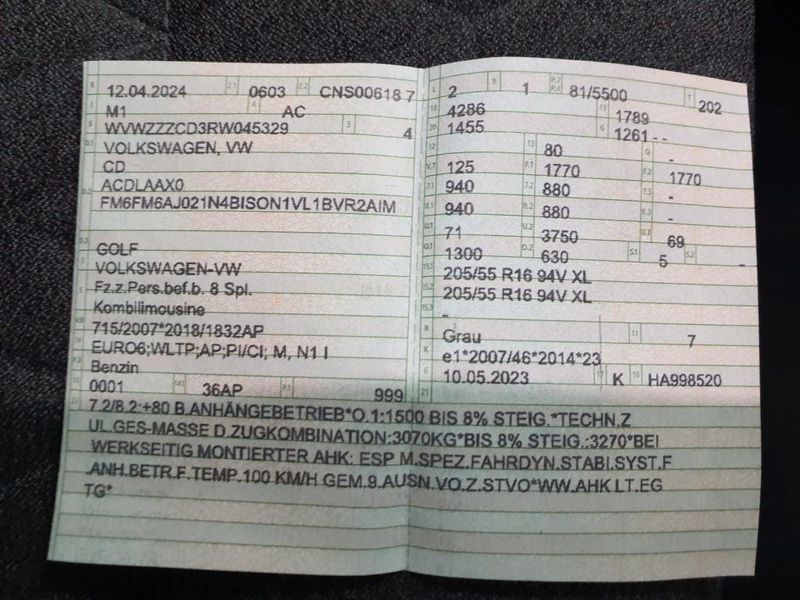 B 12.04.2024 2.1 0603 2.2 CNS00618 7
J M1 4 AC
E WVWZZZCD3RW045329 3 4
D.1 VOLKSWAGEN, VW
CD
D.2 ACDLAAX0
FM6FM6AJ021N4BISON1VL1BVR2AIM
D.3 GOLF
2 VOLKSWAGEN-VW
5 Fz.z.Pers.bef.b. 8 Spl.
Kombilimousine
V.9 715/2007*2018/1832AP
14 EURO6;WLTP;AP;PI/CI; M, N1 I
P.3 Benzin
10 0001 14.1 36AP P.1 999
L 2 9 1 P.2 P.4 81/5500 T 202
18 4286 19 1789
20 1455 G 1261 - -
12 - 13 80 Q -
V.7 125 F.1 1770 F.2 1770
7.1 940 7.2 880 7.3 -
8.1 940 8.2 880 8.3 -
U.1 71 U.2 3750 U.3 69
O.1 1300 O.2 630 S.1 5 S.2 -
15.1 205/55 R16 94V XL
15.2 205/55 R16 94V XL
15.3 -
R Grau 11 7
K e1*2007/46*2014*23
6 10.05.2023 17 K 16 HA998520
21
22 7.2/8.2:+80 B.ANHÄNGEBETRIEB*O.1:1500 BIS 8% STEIG.*TECHN.Z
UL.GES-MASSE D.ZUGKOMBINATION:3070KG*BIS 8% STEIG.:3270*BEI
WERKSEITIG MONTIERTER AHK: ESP M.SPEZ.FAHRDYN.STABI.SYST.F
.ANH.BETR.F.TEMP.100 KM/H GEM.9.AUSN.VO.Z.STVO*WW.AHK LT.EG
TG*